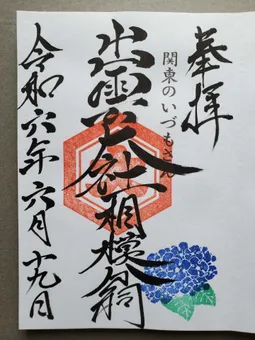 奉拝
関東のいづもさん
出雲大社相模分祠
令和六年六月十九日